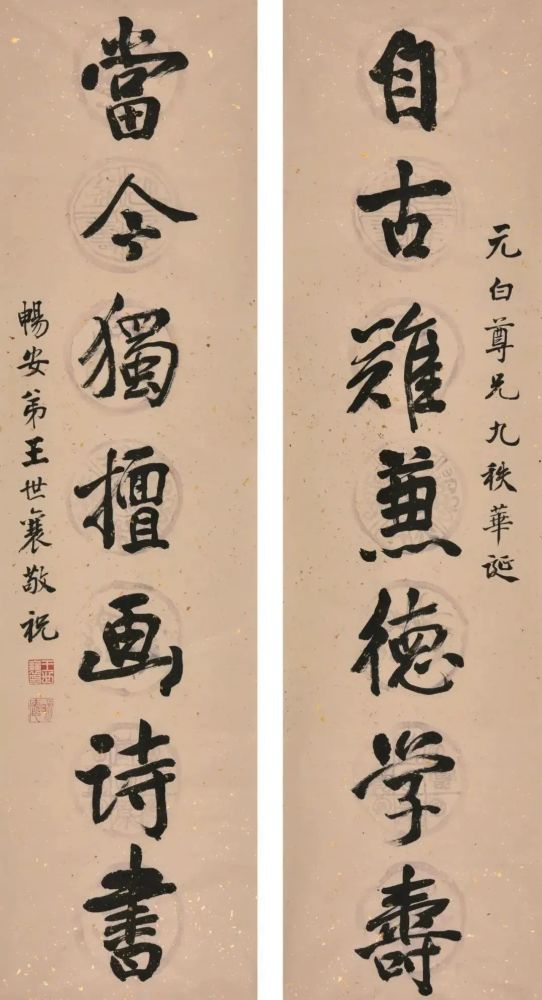 元白尊兄九秩華誕
自古難兼德学壽
當今獨擅画诗書
暢安弟王世襄敬祝